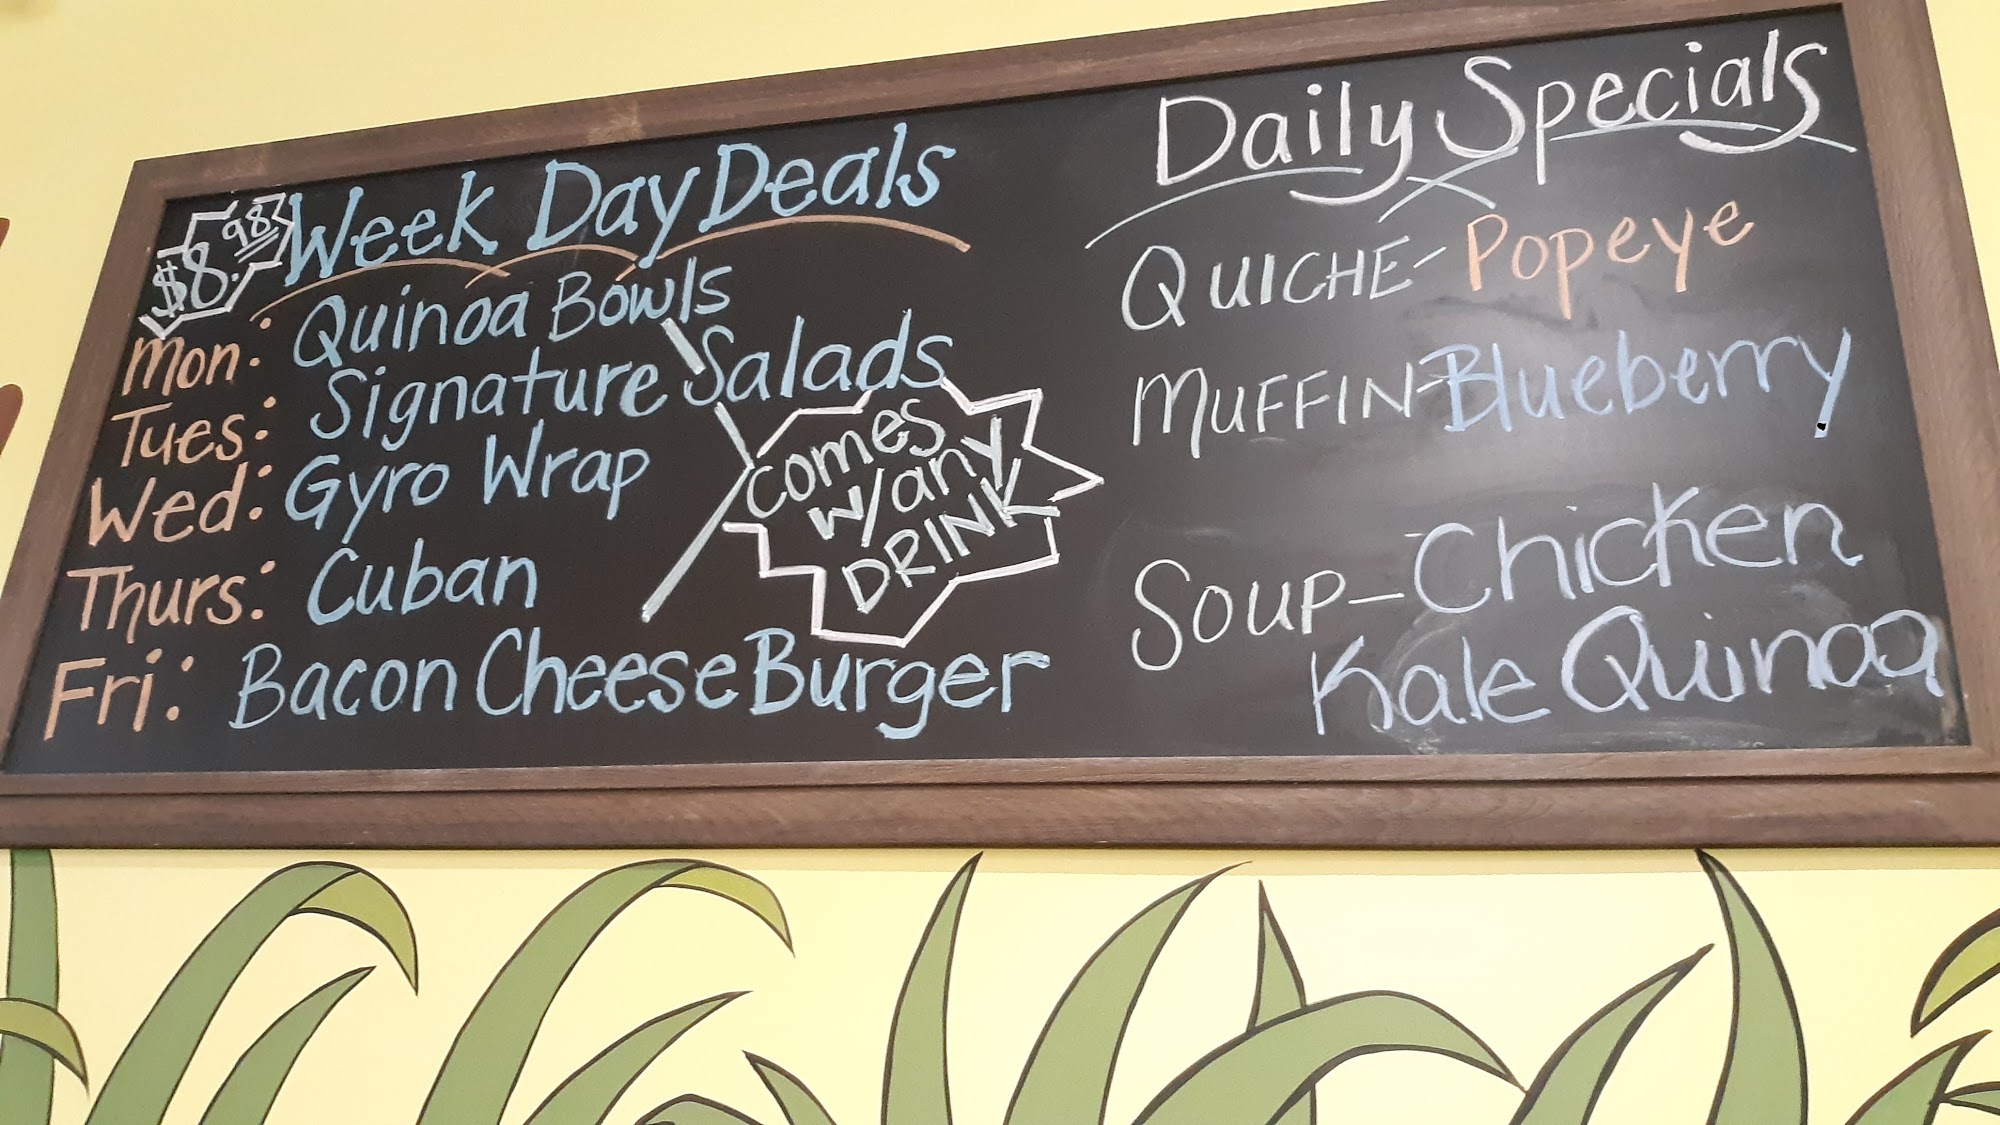 $8.98 Week Day Deals
Mon: Quinoa Bowls
Tues: Signature Salads
Wed: Gyro Wrap
Thurs: Cuban
Fri: Bacon Cheese Burger
Comes
w/any
DRINK
Daily Specials
QUICHE- Popeye
MUFFIN-Blueberry
SOUP-Chicken
Kale Quinoa